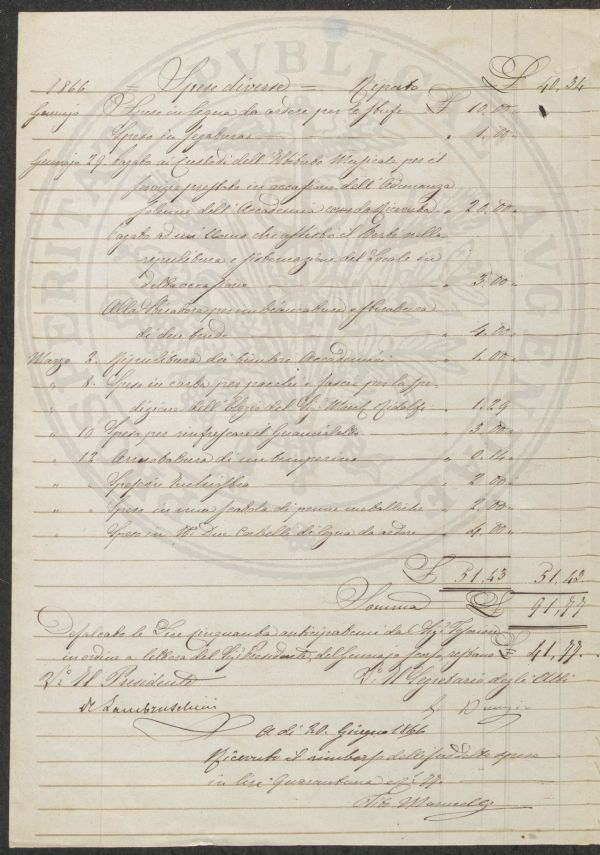 1866 = Spese diverse = Riporto £ 40,34
Gennajo Spese in legna da ardere per le stufe £ 10,00
Spesa in 1,00
Gennajo 29 Pagato ai Custodi dell'Istituto Musicale per il
servizio prestato in occasione dell'Adunanza
Solenne dell'Accademia come da Ricevuta " 20,00
Pagato ad un Uomo che assistè il nella
ripulitura e del Locale in
detta occasione " 3,00
Alla per imbiancatura e stiratura
di due tende " 4,00
Marzo 2. Ripulitura dei timbri Accademici " 1,00
" 8. Spese in carta per pacchi e fasce per la spe-
dizione dell'Elogio del Sig.e March. Ridolfi " 1,29
" 10 Spesa per rinfrescare il " 3,00
" 12 Arruotatura di un temperino " 0,14
" " Spesa in 2,00
" " Spesa in una scatola di penne metalliche " 2,00
" " Spesa in N. Due Corbelli di legna da ardere " 4,00
£ 51,43 51,43
Somma £ 91,77
Defalcate le Lire Cinquanta anticipatemi dal Sig.
in ordine a lettera del Sig. Presidente, del Gennajo restano £ 41,77.
V.o Il Presidente V.o Il Segretario degli Atti
R. Lambruschini
A dì 20. Giugno 1866
Ricevuto il rimborso delle suddette spese
in lire Quarantuna e C. 77